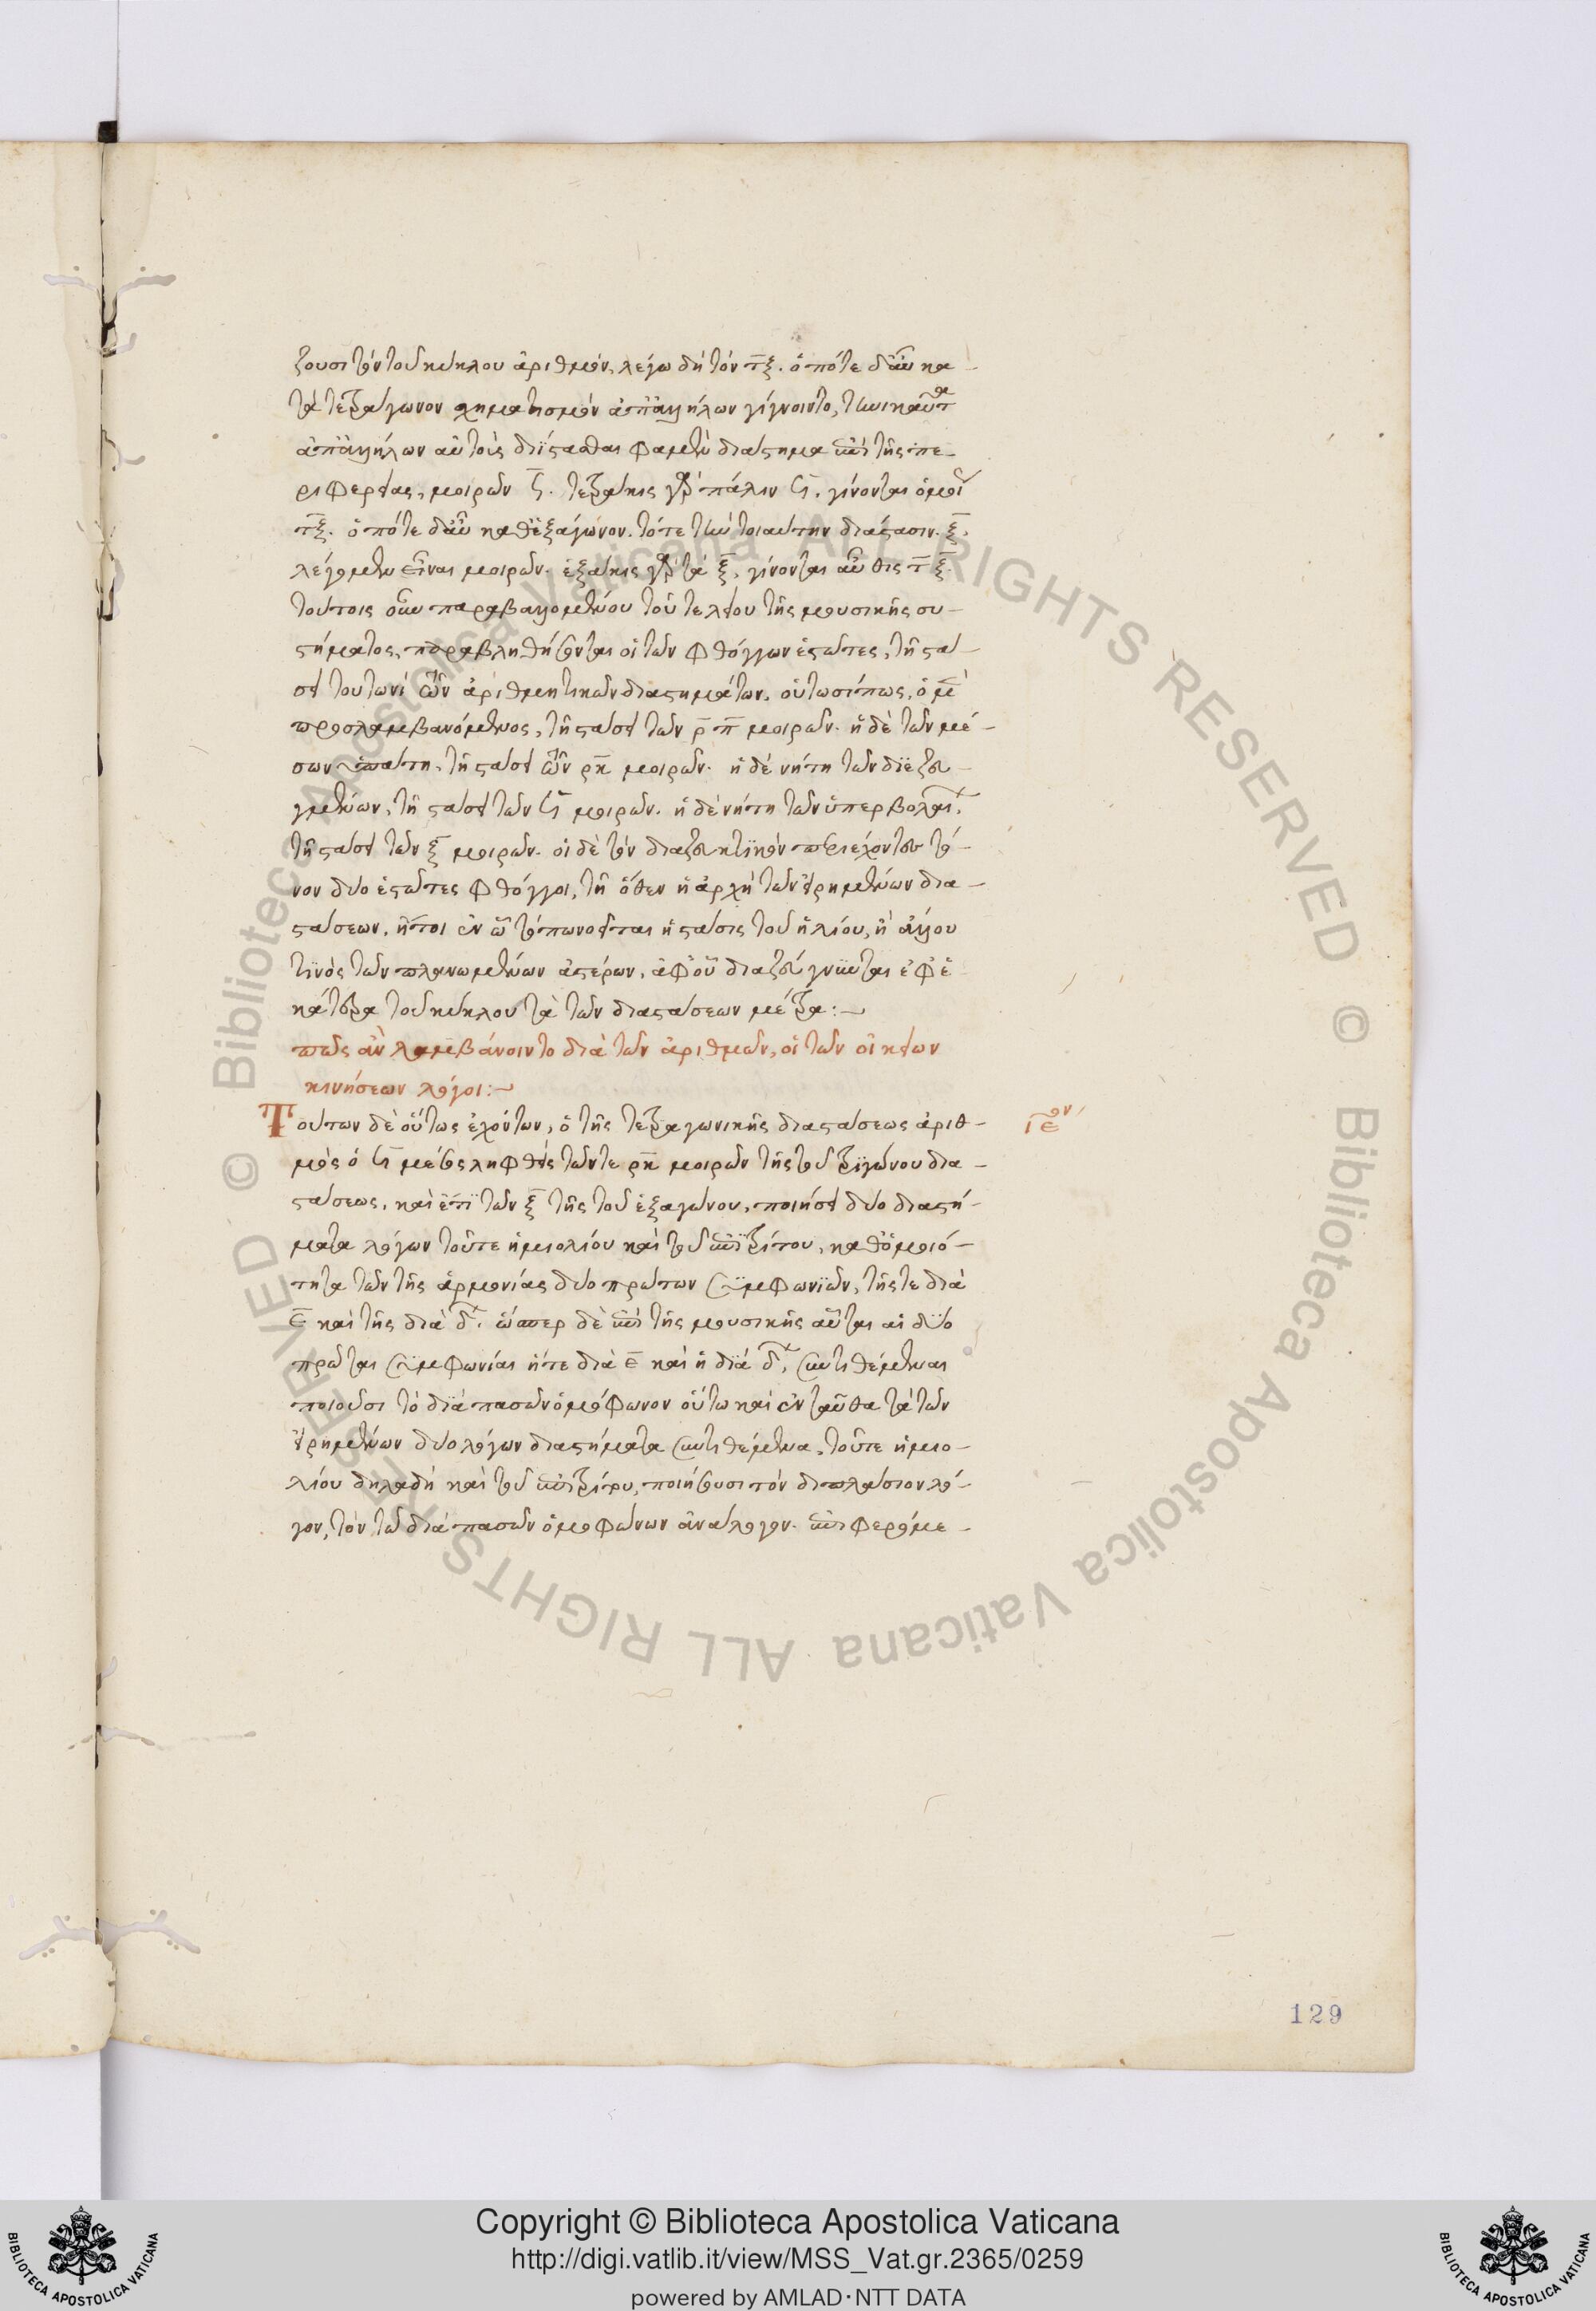 ζουσι τὸν τοῦ κύκλου ἀριθμόν, λέγω δὴ τὸν τ̅ξ̅. ὁπότε δ' αὖ κα-
τὰ τετράγωνον σχηματισμὸν ἀπ' ἀλλήλων γίγνοιντο, τηνικαῦτα
ἀπ' ἀλλήλων αὐτοὺς διΐστασθαι φαμὲν διάστημα ἐπὶ τῆς πε-
ριφερείας, μοιρῶν ϟ̅. τετράκις γὰρ πάλιν ϟ̅, γίνονται ὁμοῦ
τ̅ξ̅. ὁπότε δ' αὖ καθ' ἑξάγωνον. τότε τὴν τοιαύτην διάστασιν. ξ̅.
λέγομεν εἶναι μοιρῶν. ἑξάκις γὰρ τὰ ξ̅, γίνονται αὖθις τ̅ ξ̅.
τούτοις οὖν παραβαλλομένου τοῦ τελείου τῆς μουσικῆς συ-
στήματος, παραβληθήσονται οἱ τῶν φθόγγων ἑστῶτες, τῇ στά-
σει τουτωνὶ τῶν ἀριθμητικῶν διαστημάτων. οὑτωσίπως, ὁ μὲν
προσλαμβανόμενος, τῇ στάσει τῶν ρ̅π̅ μοιρῶν. ἡ δὲ τῶν μέ-
σων ὑπάτη, τῇ στάσει τῶν ρ̅κ̅ μοιρῶν. ἡ δὲ νήτη τῶν διεζευ-
γμένων, τῇ στάσει τῶν ϟ̅ μοιρῶν. ἡ δὲ νήτη τῶν ὑπερβολαίων,
τῇ στάσει τῶν ξ̅ μοιρῶν. οἱ δὲ τὸν διαζευκτικὸν περιέχοντες τό-
νον δύο ἑστῶτες φθόγγοι, τῇ ὅθεν ἡ ἀρχὴ τῶν εἰρημένων δια-
στάσεων. ἤτοι ἐν ᾧ τόπω νοεῖται ἡ στάσις τοῦ ἡλίου, ἢ ἄλλου
τινὸς τῶν πλανωμένων ἀστέρων, ἀφ' οὗ διαζεύγνυνται ἐφ' ἑ-
κάτερα τοῦ κύκλου τὰ τῶν διαστάσεων μέτρα:
πῶς ἂν λαμβάνοιντο διὰ τῶν ἀριθμῶν, οἱ τῶν οἰκείων
κινήσεων λόγοι:
Τούτων δὲ οὕτως ἐχόντων, ὁ τῆς τετραγωνικῆς διαστάσεως ἀριθ-
ιε̅ον
μὸς ὁ ϟ̅ μέσος ληφθεὶς τῶν τε ρ̅κ̅ μοιρῶν τῆς τοῦ τριγώνου δια-
στάσεως, καὶ ἔτι τῶν ξ̅ τῆς τοῦ ἑξαγώνου, ποιήσει δύο διαστή-
ματα λόγων τοῦτε ἡμιολίου καὶ τοῦ ἐπιτρίτου, καθ' ὁμοιό-
τητα τῶν τῆς ἁρμονίας δύο πρώτων συμφωνιῶν, τῆς τε διὰ
ε̅ καὶ τῆς διὰ δ̅. ὥσπερ δὲ ἐπὶ τῆς μουσικῆς αὗται αἱ δύο
πρῶται συμφωνίαι ἥτε διὰ ε̅ καὶ ἡ διὰ δ̅, συντιθέμεναι
ποιοῦσι τὸ διὰ πασῶν ὁμόφωνον οὕτω καὶ ἐνταῦθα τὰ τῶν
εἰρημένων δύο λόγων διαστήματα συντιθέμενα, τοῦτε ἡμιο-
λίου δηλαδὴ καὶ τοῦ ἐπιτρίτου, ποιήσουσι τὸν διπλάσιον λό-
γον, τὸν τῶ διὰ πασῶν ὁμοφώνων ἀνάλογον. ἐπιφερόμε-
129
Copyright © Biblioteca Apostolica Vaticana
http://digi.vatlib.it/view/MSS_Vat.gr.2365/0259
powered by AMLAD·NTT DATA